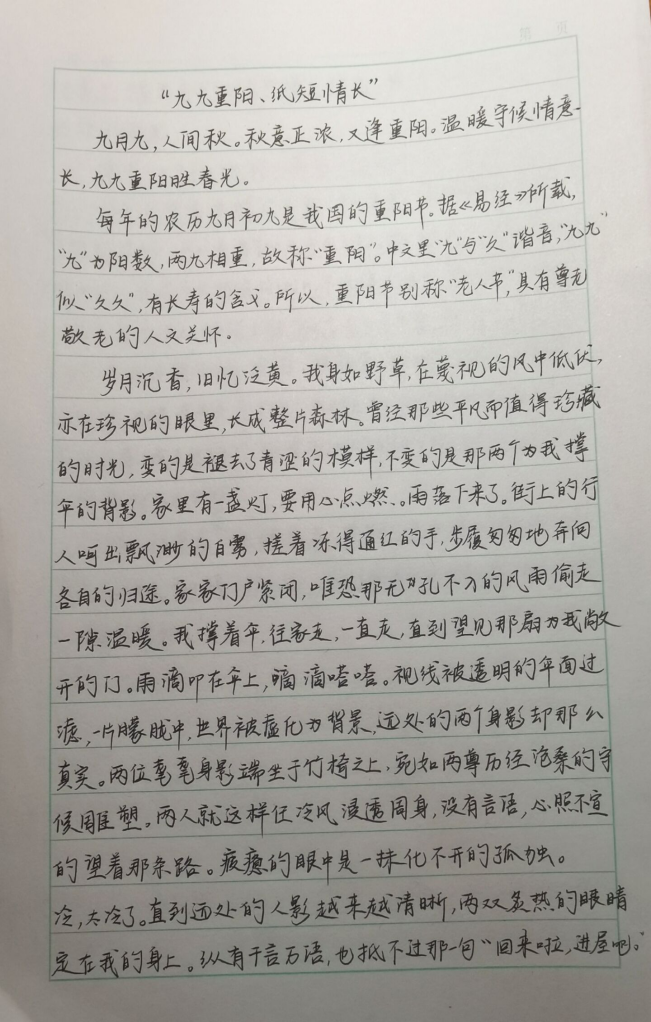 第 页
“九九重阳、纸短情长”
九月九，人间秋。秋意正浓，又逢重阳。温暖守候情意
长，九九重阳胜春光。
每年的农历九月初九是我国的重阳节。据《易经》所载，
“九”为阳数，两九相重，故称“重阳”。中文里“九”与“久”谐音，“九九”
似“久久”，有长寿的含义。所以，重阳节别称“老人节”，具有尊老
敬老的人文关怀。
岁月沉香，旧忆泛黄。我身如野草，在蔑视的风中低伏，
亦在珍视的眼里，长成整片森林。曾经那些平凡而值得珍藏
的时光，变的是褪去了青涩的模样，不变的是那两个为我撑
伞的背影。家里有一盏灯，要用心点燃。雨落下来了。街上的行
人呵出飘渺的白雾，搓着冻得通红的手，步履匆匆地奔向
各自的归途。家家门户紧闭，唯恐那无孔不入的风雨偷走
一隙温暖。我撑着伞，往家走，一直走，直到望见那扇为我敞
开的门。雨滴叩在伞上，嘀滴嗒嗒。视线被透明的伞面过
滤，一片朦胧中，世界被虚化为背景，远处的两个身影却那么
真实。两位耄耋身影端坐于竹椅之上，宛如两尊历经沧桑的守
候雕塑。两人就这样任冷风浸透周身，没有言语，心照不宣
的望着那条路。疲惫的眼中是一抹化不开的孤独。
冷，太冷了。直到远处的人影越来越清晰，两双炙热的眼睛
定在我的身上。纵有千言万语，也抵不过那一句“回来啦，进屋吧。”